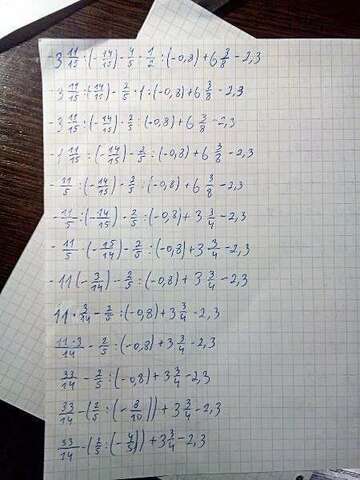 -3 11/15 : (-14/15) - 4/5 · 1/2 : (-0,8) + 6 3/8 - 2,3
-3 11/15 : (-14/15) - 2/5 · 1 : (-0,8) + 6 3/8 - 2,3
-3 11/15 : (-14/15) - 2/5 : (-0,8) + 6 3/8 - 2,3
-1 11/15 : (-14/15) - 2/5 : (-0,8) + 6 3/8 - 2,3
-11/5 : (-14/15) - 2/5 : (-0,8) + 6 3/8 - 2,3
-11/5 : (-14/15) - 2/5 : (-0,8) + 3 3/4 - 2,3
-11/5 · (-15/14) - 2/5 : (-0,8) + 3 3/4 - 2,3
-11 (-3/14) - 2/5 : (-0,8) + 3 3/4 - 2,3
11 · 3/14 - 2/5 : (-0,8) + 3 3/4 - 2,3
11·3/14 - 2/5 : (-0,8) + 3 3/4 - 2,3
33/14 - 2/5 : (-0,8) + 3 3/4 - 2,3
33/14 - (2/5 : (-8/10)) + 3 3/4 - 2,3
33/14 - (2/5 : (-4/5)) + 3 3/4 - 2,3